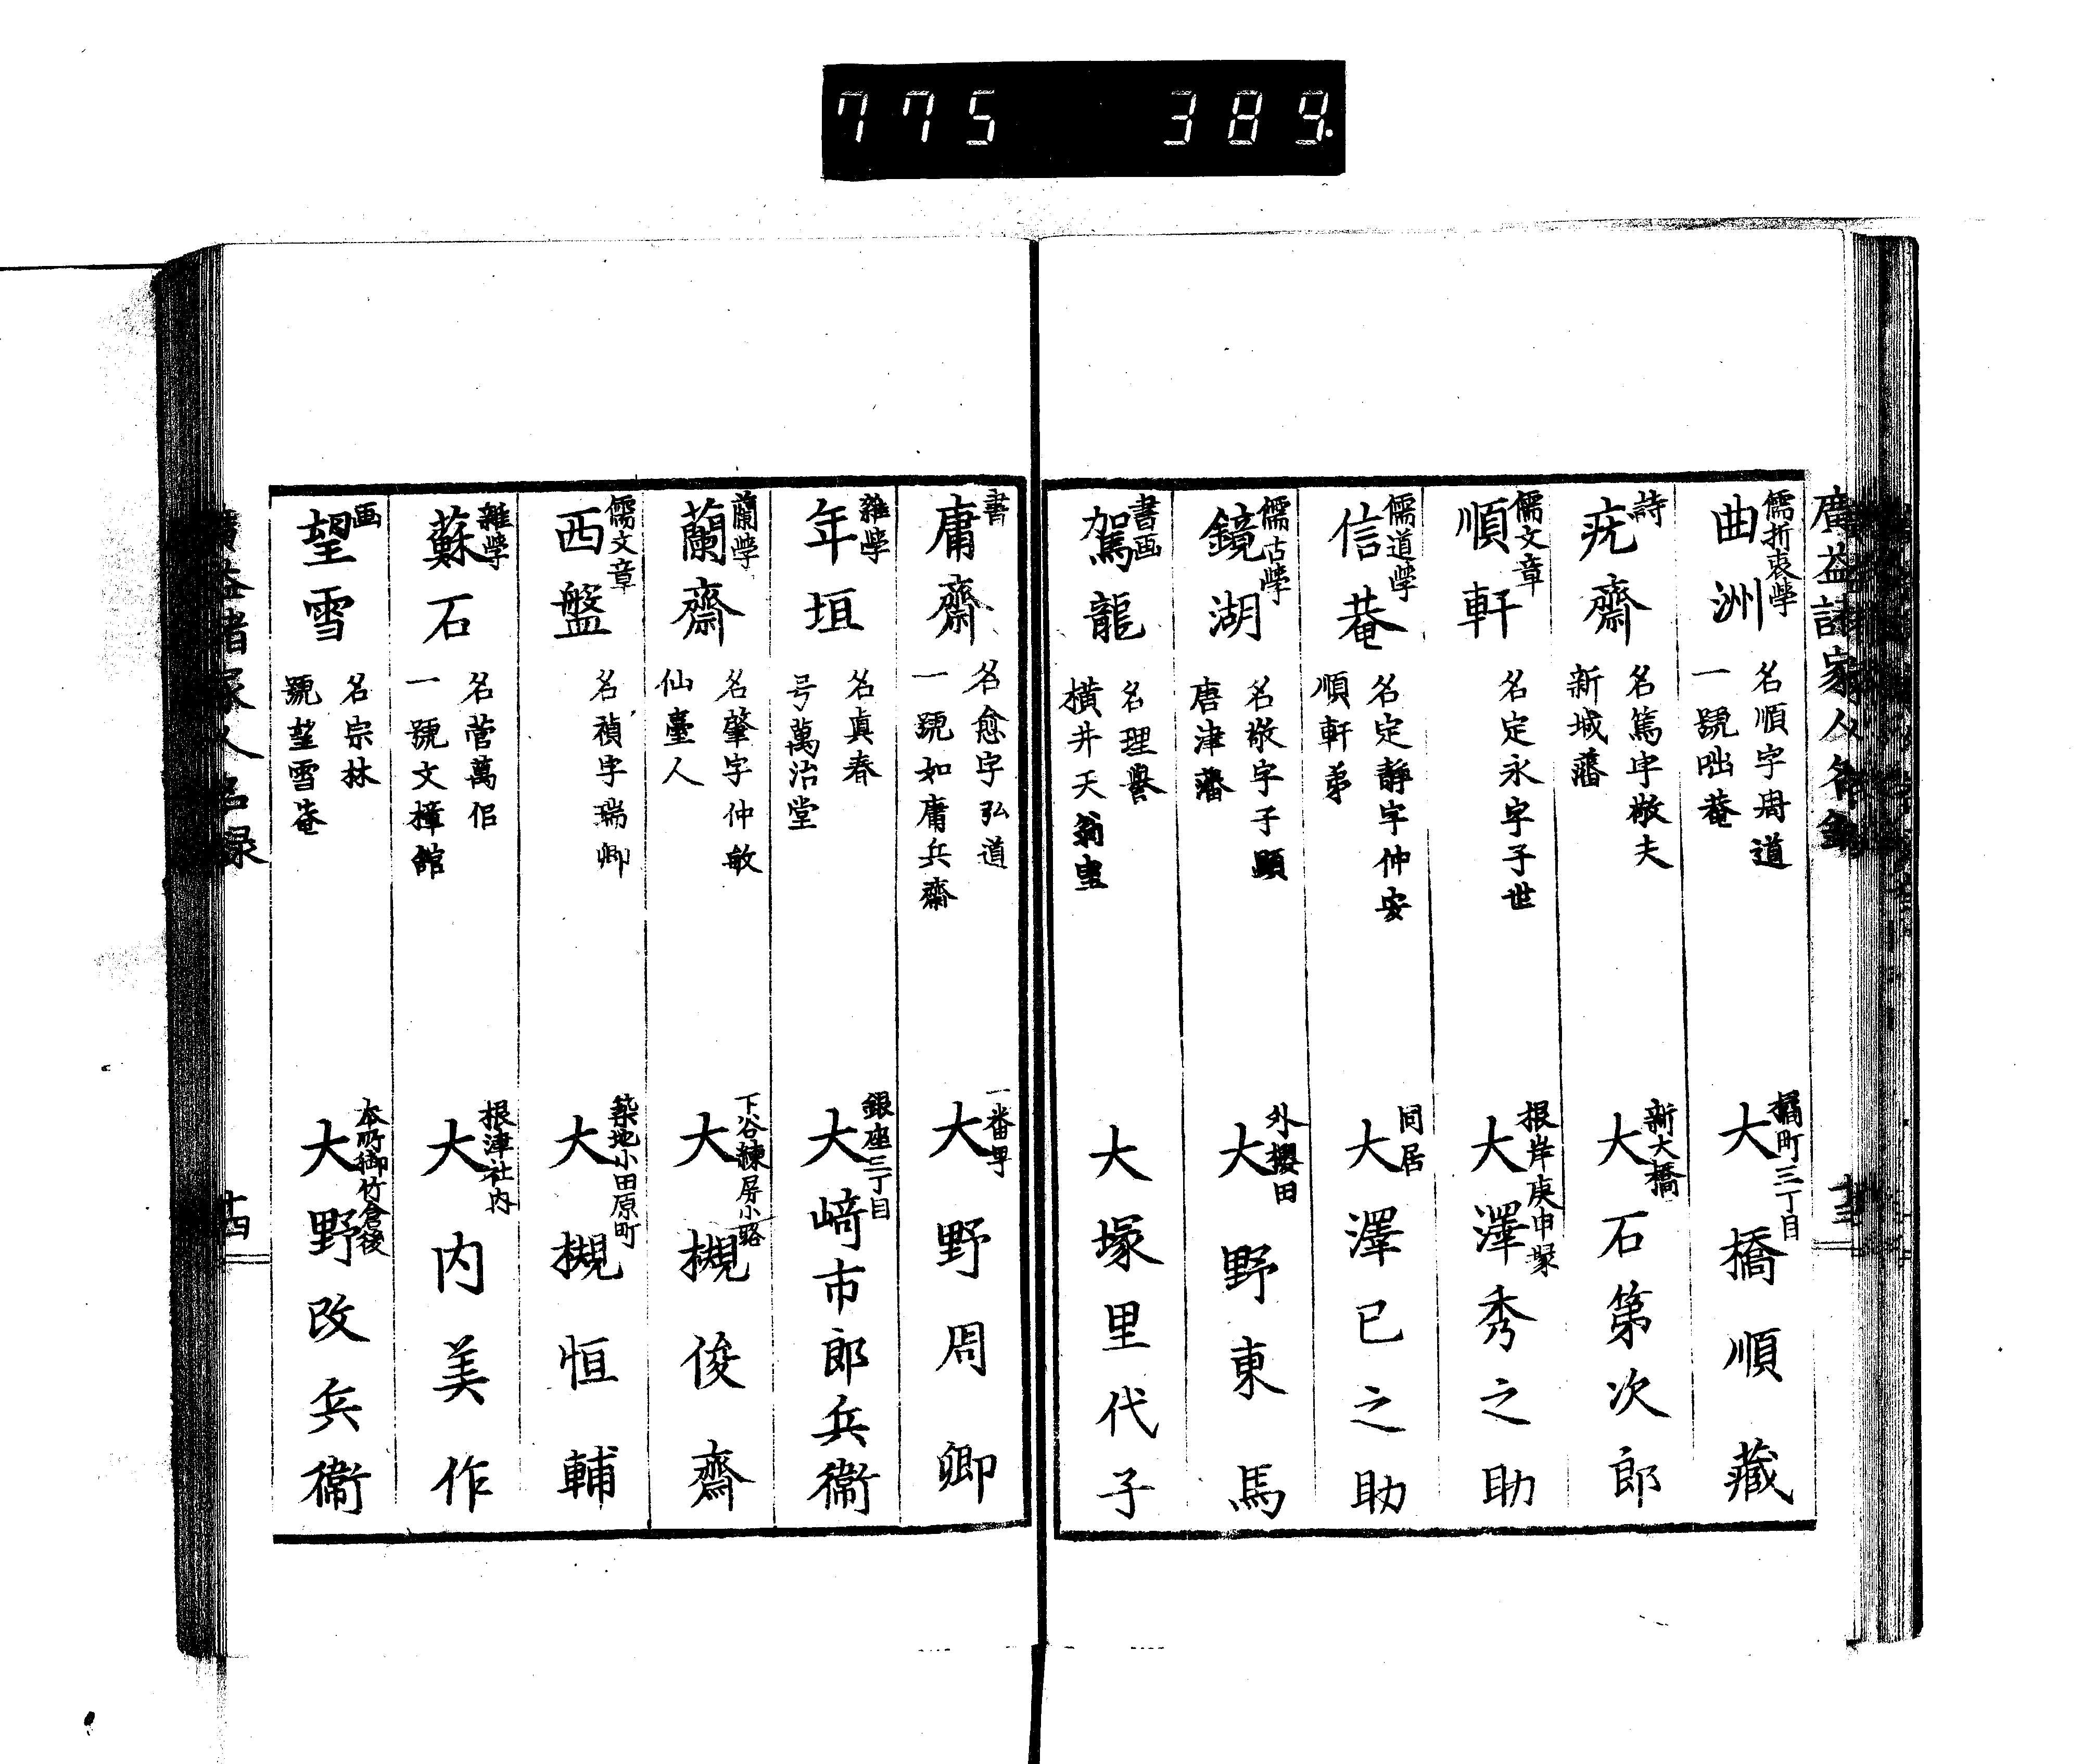 775 389.
廣益諸家人名録
十三
儒折衷學
曲洲
名順字周道
一號咄菴
橘町三丁目
大橋順藏
詩
疣齋
名篤字敬夫
新城藩
新大橋
大石第次郎
儒文章
順軒
名定永字子世
根岸庚申塚
大澤秀之助
儒道學
信菴
名定靜字仲安
順軒弟
同居
大澤已之助
儒古學
鏡湖
名敬字子顯
唐津藩
外櫻田
大野東馬
書画
駕龍
名理譽
橫井天翁
大塚里代子
書
庸齋
名愈字弘道
一號如庸兵齋
一番町
大野周卿
雜學
年垣
名眞春
号萬治堂
銀座三丁目
大﨑市郎兵衞
蘭學
蘭齋
名肇字仲敏
仙臺人
下谷練屏小路
大槻俊齋
儒文章
西盤
名禎字瑞卿
築地小田原町
大槻恒輔
雜學
蘇石
名菅萬佀
一號文樟館
根津社内
大内美作
画
望雪
名宗林
號望雪菴
本所御竹倉後
大野改兵衞
廣益諸家人名録
十四